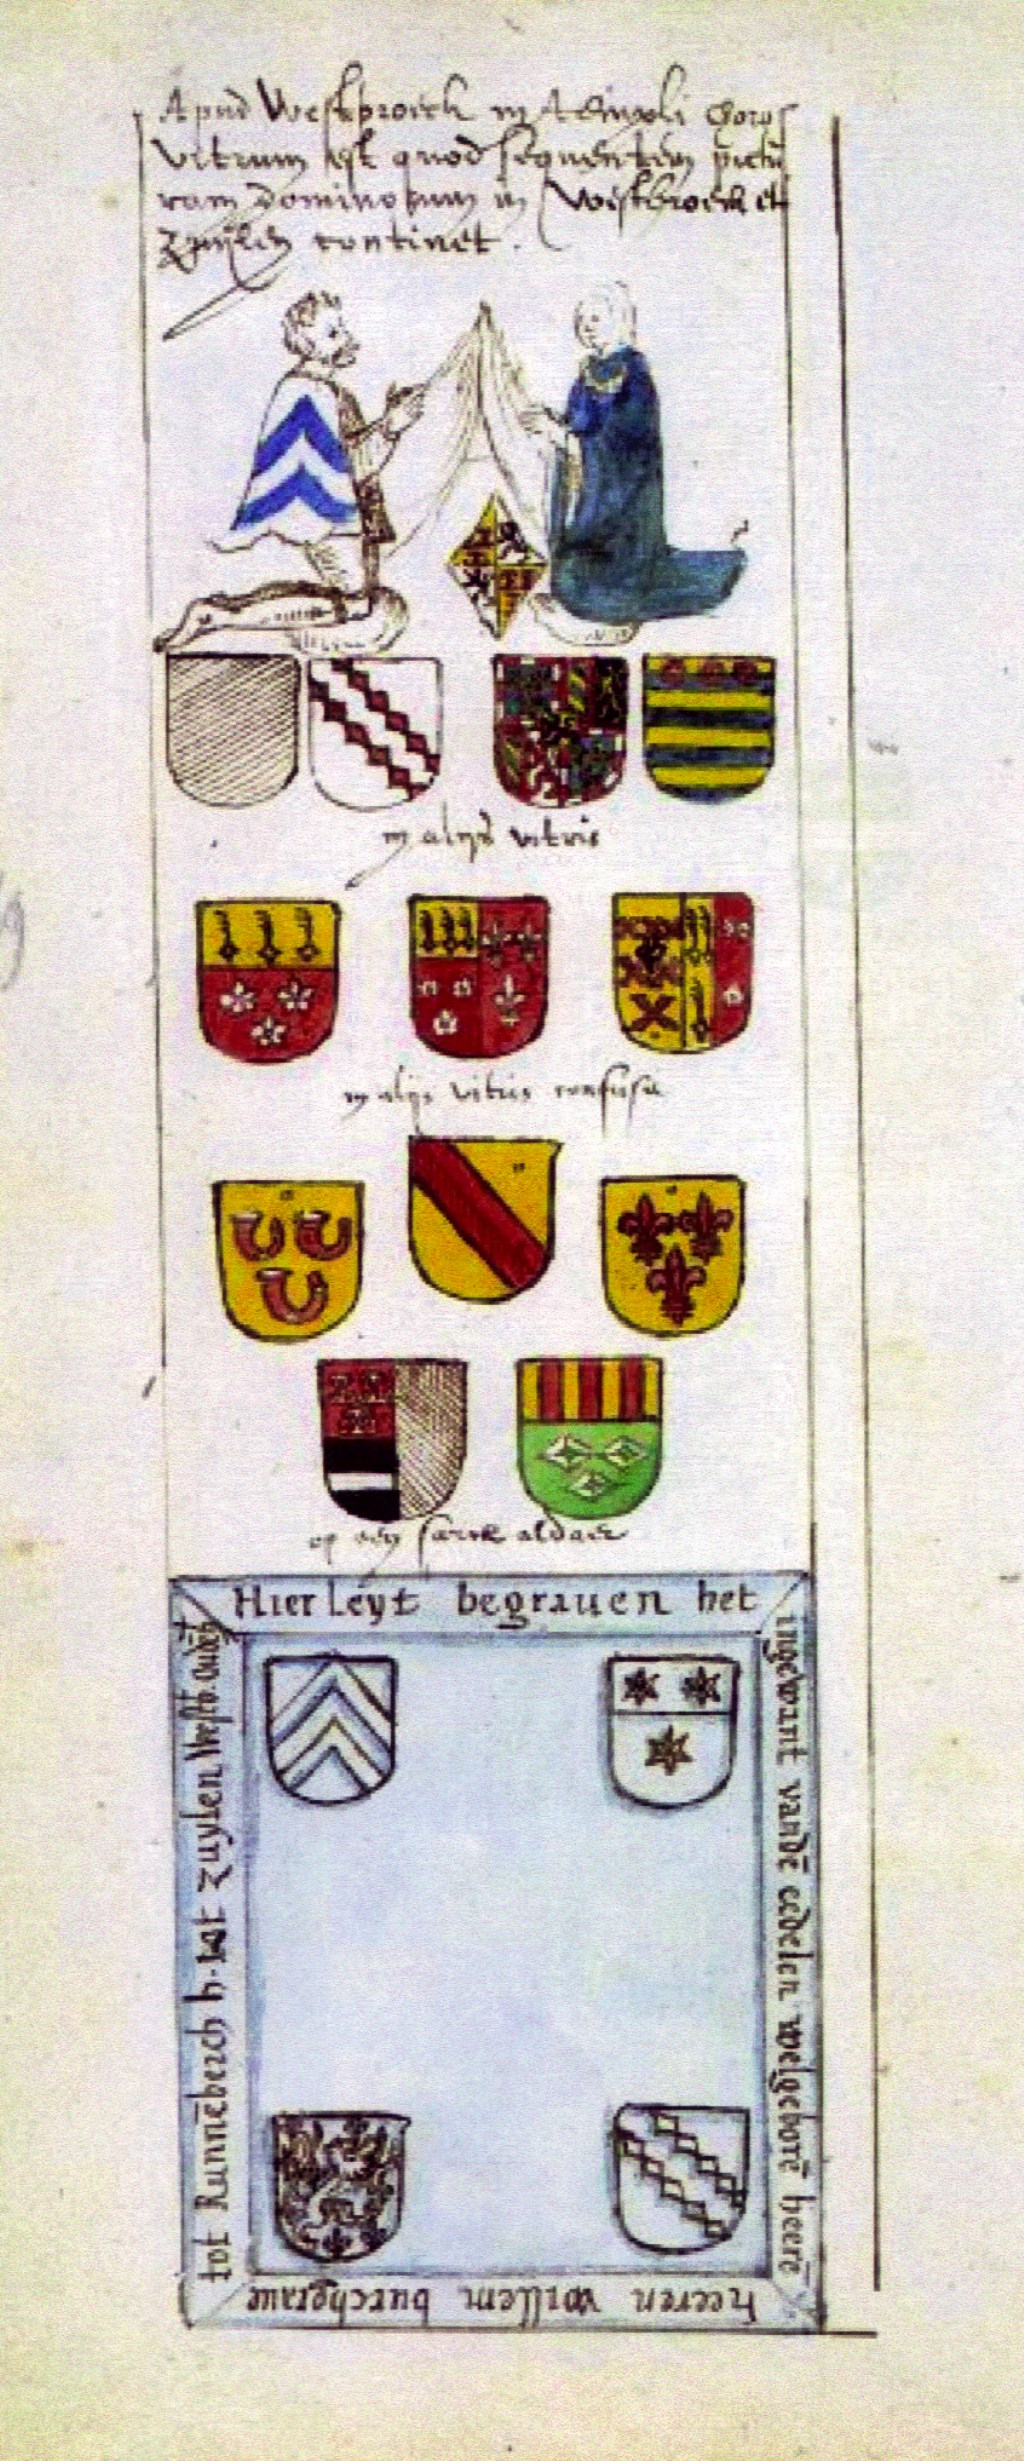 Apud Westbroeck in templi choro
vitrum est quod sequentem pictu
ram dominorum in Westbroeck et
Zuijlen continet.
in alijs vitris
in alijs vitris confusa
op een sarck aldaer
Hier leyt begrauen het
ingewant vandē eedelen welgeborē heerē
heeren willem burchgraue
tot Runnēberch h. tot zuylen Westb.